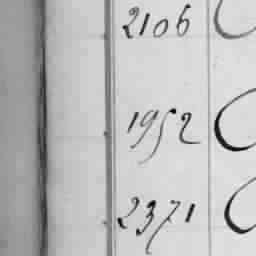 2106
1952
2371